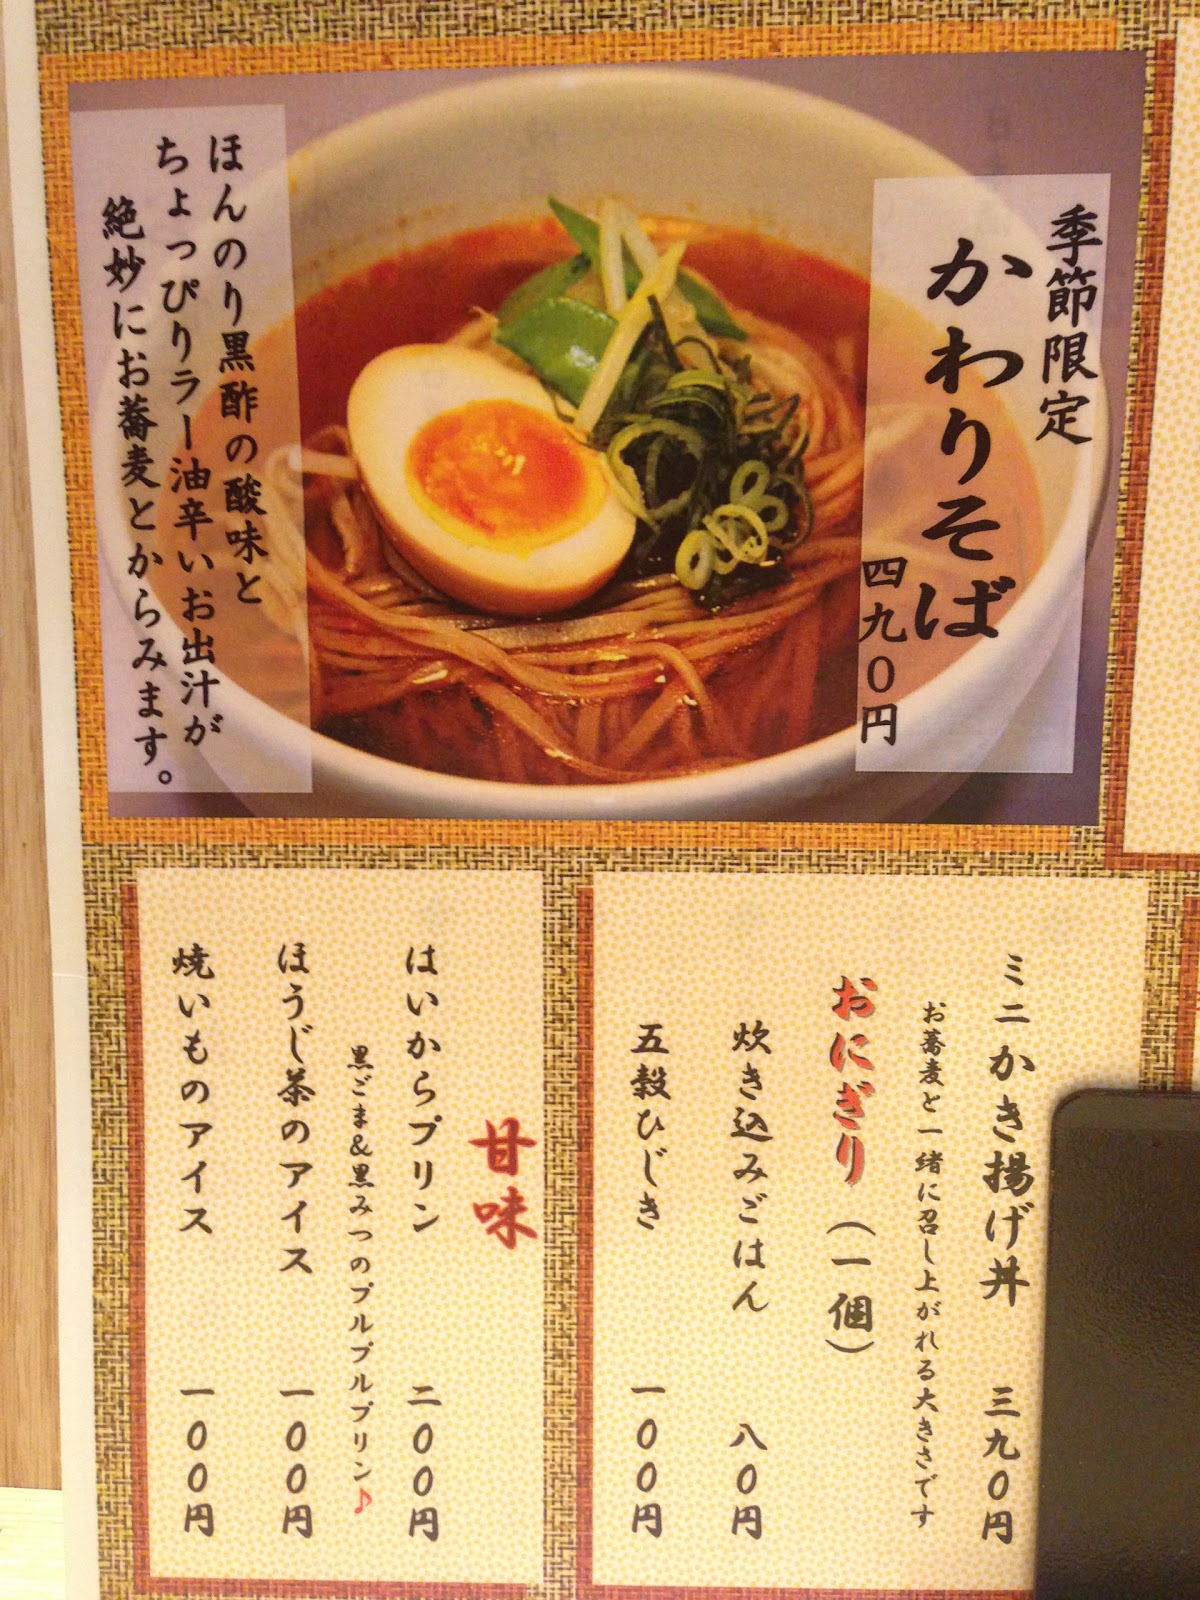 季節限定
かわりそば
四九〇円
ほんのり黒酢の酸味と
ちょっぴりラー油辛いお出汁が
絶妙にお蕎麦とからみます。
ミニかき揚げ丼 三九〇円
お蕎麦と一緒に召し上がれる大きさです
おにぎり（一個）
炊き込みごはん 八〇円
五穀ひじき 一〇〇円
甘味
はいからプリン 二〇〇円
黒ごま&黒みつのプルプルプリン♪
ほうじ茶のアイス 一〇〇円
焼いものアイス 一〇〇円